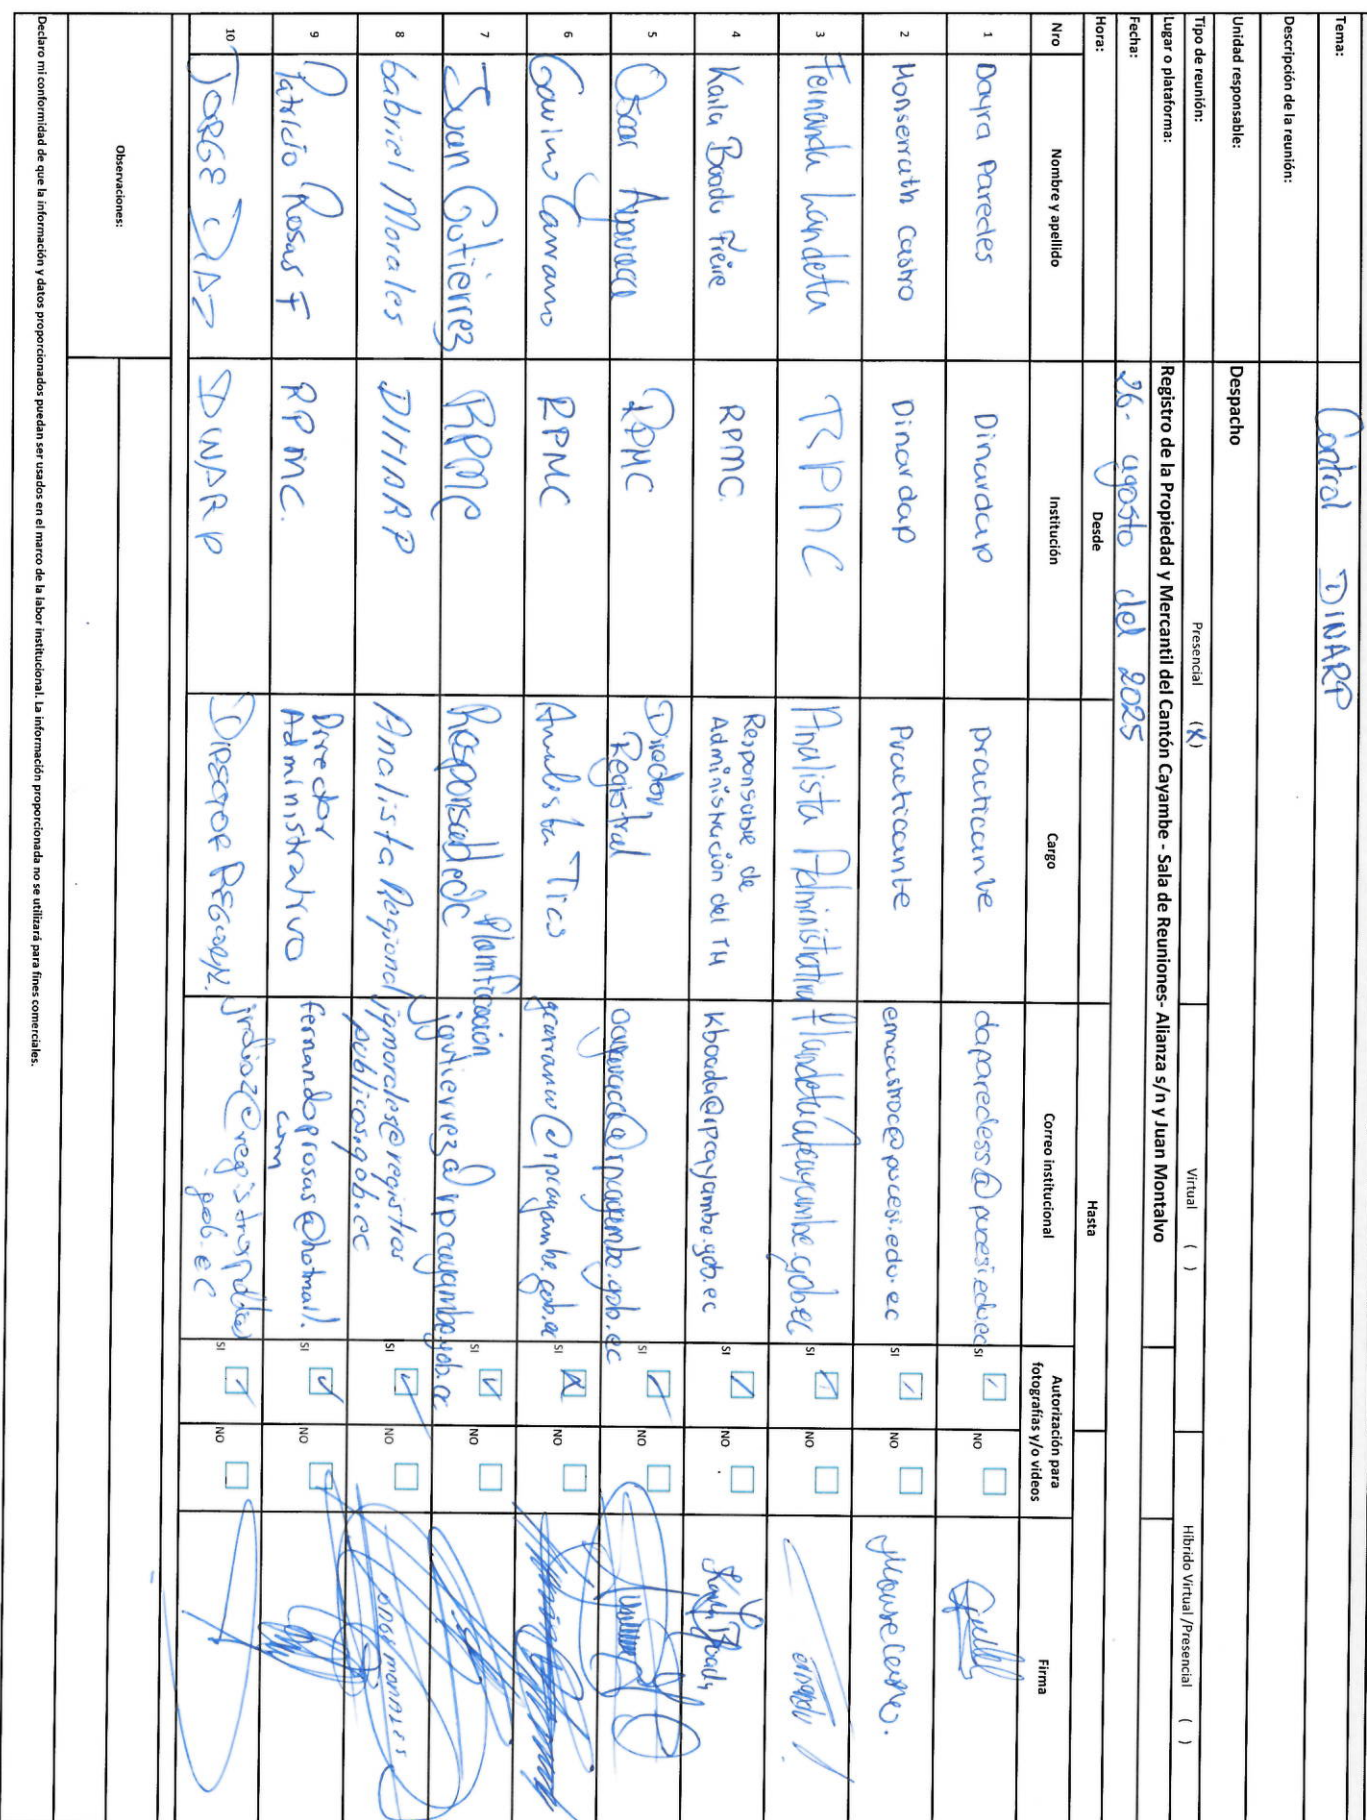 Tema: Control DINARP
Descripción de la reunión:
Unidad responsable: Despacho
Tipo de reunión: Presencial (X) Virtual ( ) Híbrido Virtual/Presencial ( )
Lugar o plataforma: Registro de la Propiedad y Mercantil del Cantón Cayambe - Sala de Reuniones- Alianza s/n y Juan Montalvo
Fecha: 26- agosto del 2025
Hora: Desde Hasta
Nro Nombre y apellido Institución Cargo Correo institucional Autorización para fotografías y/o videos Firma
1 Dayra Paredes Dinardap practicante daparedess@pucesi.edu.ec SI NO
2 Monserrath Castro Dinardap Practicante emcastroc@pucesi.edu.ec SI NO
3 Fernanda Landeta RPMC Analista Administrativa SI NO
4 Karla Boada Freire RPMC. Responsable de Administración del TH kboada@rpcayambe.gob.ec SI NO
5 Oscar RPMC Director Registral SI NO
6 RPMC Analista Tics SI NO
7 Juan Gutierrez RPMC Responsable de Planificación jgutierrez@rpcayambe.gob.ec SI NO
8 Gabriel Morales DINARP Analista Regional jgmorales@registros publicos.gob.ec SI NO
9 Patricio Rosas F RPMC. Director Administrativo fernandoprosas@hotmail. com SI NO
10 JORGE DIAZ DINARP DIRECTOR REGIONAL SI NO
Observaciones:
Declaro mi conformidad de que la información y datos proporcionados puedan ser usados en el marco de la labor institucional. La información proporcionada no se utilizará para fines comerciales.